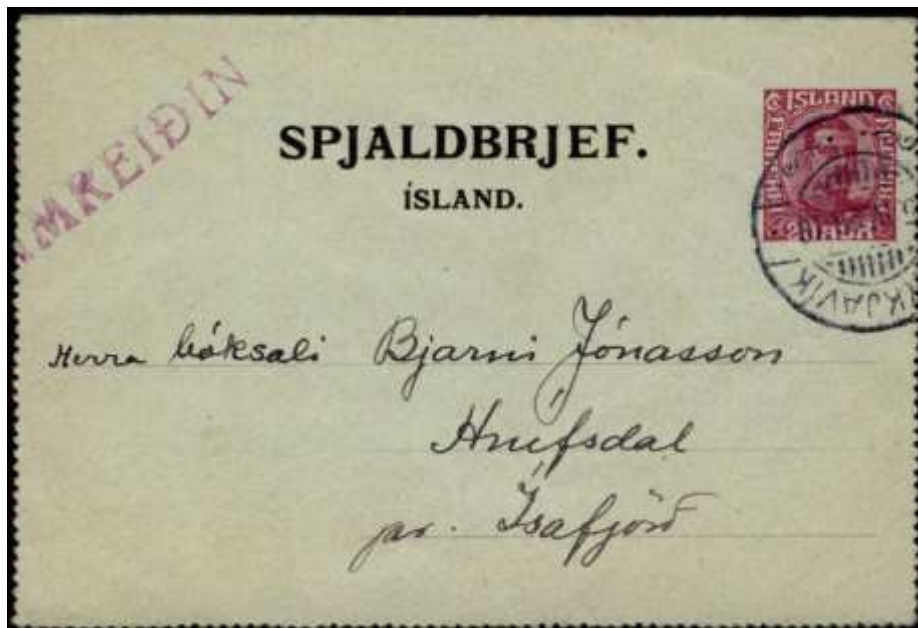 SPJALDBRJEF.
ÍSLAND.
ÍSLAND
Herra bóksali Bjarni Jónasson
Hnífsdal
pr. Ísafjörð